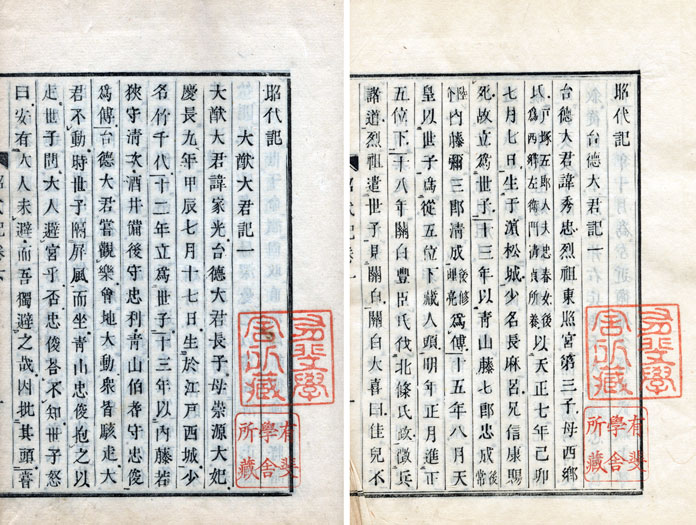 昭代記
台德大君記一
台德大君諱秀忠烈祖東照宮第三子母西鄉
氏戶塚五郎大夫忠春女後爲西鄉左衛門清貞所養以天正七年己卯
七月七日生于濱松城少名長麻呂兄信康賜
死故立爲世子十三年以青山藤七郎忠成後常
陸介內藤彌三郎清成後修理亮爲傅十五年八月天
皇以世子爲從五位下藏人頭明年正月進正
五位下十八年關白豐臣氏伐北條氏政徵兵
諸道烈祖遣世子見關白關白大喜曰佳兒不
昭代記卷一
有斐學舍所藏
有斐學舍所藏
昭代記
大猷大君記一
大猷大君諱家光台德大君長子母崇源大妃
慶長九年甲辰七月十七日生於江戶西城少
名竹千代十二年立爲世子十三年以內藤若
狹守清次酒井備後守忠利青山伯耆守忠俊
爲傅台德大君嘗觀樂會地大動衆皆駭走大
君不動時世子隔屏風而坐青山忠俊抱之以
走世子問大人避宮乎否忠俊答不知世子怒
曰安有大人未避而吾獨避之哉因批其頭嘗
昭代記卷六
有斐學舍所藏
有斐學舍所藏